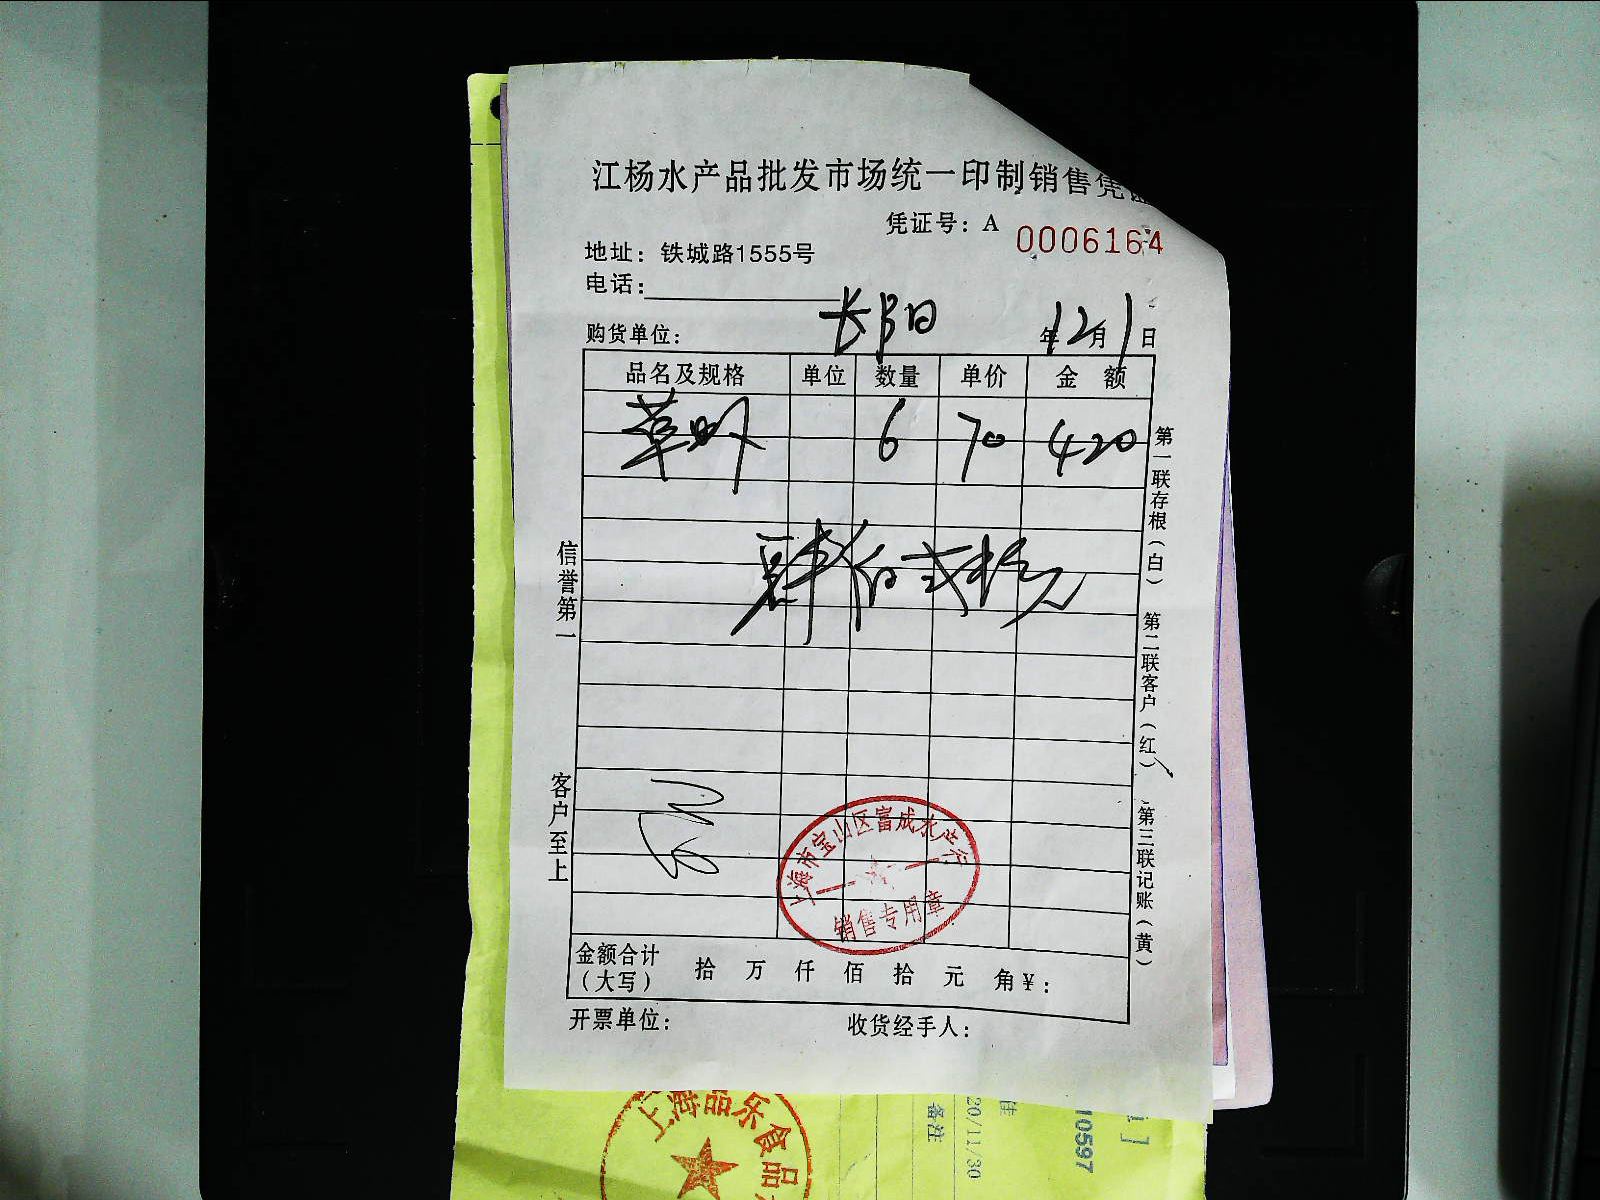 江杨水产品批发市场统一印制销售凭证
凭证号：A 0006164
地址：铁城路1555号
电话：
购货单位：长阳 年12月1日
品名及规格 单位 数量 单价 金额
草虾 6 70 420
肆佰弍拾元
信誉第一
客户至上
第一联存根（白）
第二联客户（红）
第三联记账（黄）
上海市宝山区富成水产行
销售专用章
金额合计（大写） 拾 万 仟 佰 拾 元 角￥：
开票单位：
收货经手人：
上海品乐食品
备注
20/11/30
10597